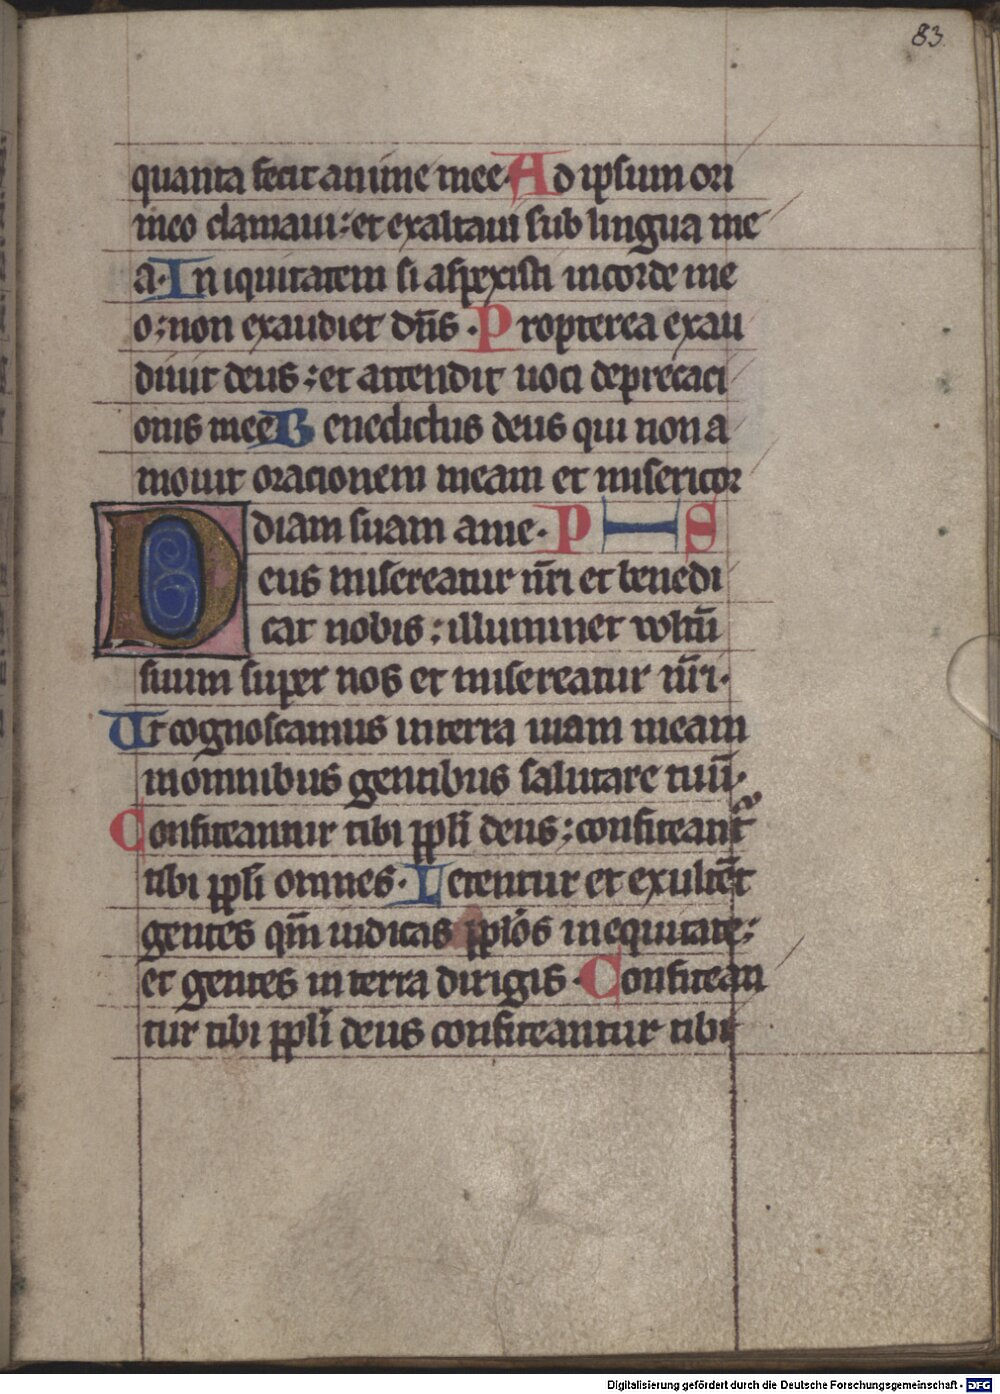 83
quanta fecit anime mee. Ad ipsum ori
meo clamaui: et exaltaui sub lingua me
a. Iniquitatem si aspexisti in corde me
o: non exaudiet dn̄s. Propterea exau
diuit deus: et attendit uoci deprecaci
onis mee Benedictus deus qui non a
mouit oracionem meam et misericor
diam suam a me. PS
Deus misereatur nr̄i et benedi
cat nobis: illuminet vvltū
suum super nos et misereatur nr̄i.
Ut cognoscamus in terra uiam meam
in omnibus gentibus salutare tuū.
Confiteantur tibi ppl̄i deus: confiteant᷑
tibi ppl̄i omnes. Letentur et exultēt
gentes qm̄ iudicas pplōs in equitate:
et gentes in terra dirigis. Confitean
tur tibi ppl̄i deus confiteantur tibi
Digitalisierung gefördert durch die Deutsche Forschungsgemeinschaft - DFG